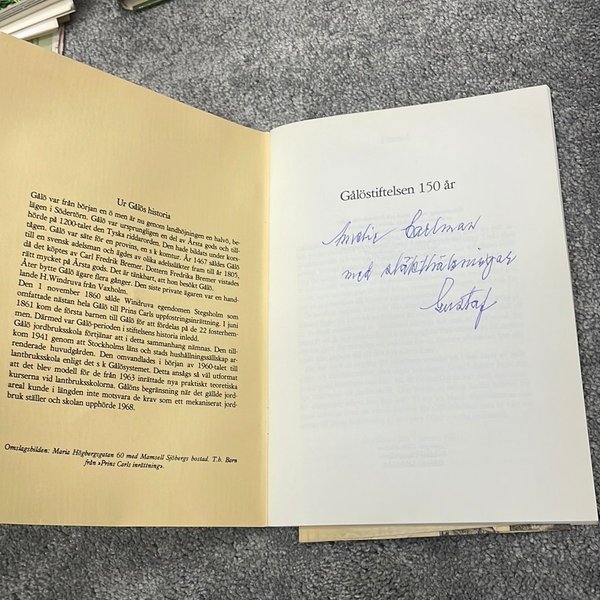 Ur Gålös historia
Gålö var från början en ö men är nu genom landhöjningen en halvö, be-
lägen i Södertörn. Gålö var ursprungligen en del av Årsta gods och till-
hörde på 1200-talet den Tyska riddarorden. Den hade bildats under kors-
tågen. Gålö var säte för en provins, en s k komtur. År 1467 såldes Gålö
till en svensk adelsman och ägdes av olika adelssläkter fram till år 1805
då det köptes av Carl Fredrik Bremer. Dottern Fredrika Bremer vistades
rätt mycket på Årsta gods. Det är tänkbart, att hon besökt Gålö.
Åter bytte Gålö ägare flera gånger. Den siste private ägaren var en hand-
lande H.Windruva från Vaxholm.
Den 1 november 1860 sålde Windruva egendomen Stegsholm som
omfattade nästan hela Gålö till Prins Carls uppfostringsinrättning. I juni
1861 kom de första barnen till Gålö för att fördelas på de 22 fosterhem-
men. Därmed var Gålö-perioden i stiftelsens historia inledd.
Gålö jordbruksskola förtjänar att i detta sammanhang nämnas. Den till-
kom 1941 genom att Stockholms läns och stads hushållningssällskap ar-
renderade huvudgården. Den omvandlades i början av 1960-talet till
lantbruksskola enligt det s k Gålösystemet. Detta ansågs så väl utformat
att det blev modell för de från 1963 inrättade nya praktiskt teoretiska
kurserna vid lantbruksskolorna. Gålöns begränsning när det gällde jord-
areal kunde i längden inte motsvara de krav som ett mekaniserat jord-
bruk ställer och skolan upphörde 1968.
Omslagsbilden: Maria Högbergsgatan 60 med Mamsell Sjöbergs bostad. T.h. Barn
från »Prins Carls inrättning».
Gålöstiftelsen 150 år
Carlman
med släkthälsningar
Gustaf